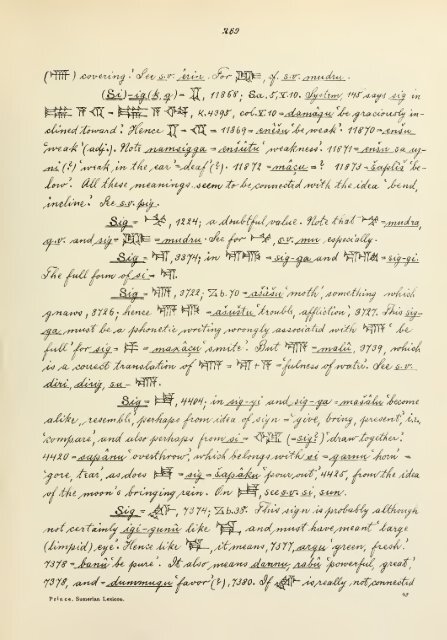 269
() covering! See s.v. erin. For , cf. s.v. mudru.
(Si)-ig (k, q) = , 11868; Sa. 5, V.10. System, 145 says sig in
= , K.4395, col. V.10 = damâqu 'be graciously in-
clined toward'. Hence = 11869 = enêšu 'be weak'. 11870 = enšu
'weak' (adj.). Note namsigga = enšûtu 'weakness'. 11871 = enšu ša uz-
ni (?) 'weak in the ear' = deaf (?). 11872 = mâçu = ? 11873 = šapliš 'be-
low'. All these meanings seem to be connected with the idea 'bend,
incline'. See s.v. pig.
Sig = , 1224; a doubtful value. Note that = mudra,
q.v. and sig = = mudru. See for , s.v. mu, especially.
Sig = , 3374; in = sig-ga and = sig-gi.
The full form of si = .
Sig = , 3722; Zb. 70 = ašâšu 'moth', something which
gnaws, 3726; hence = ašuštu 'trouble, affliction', 3727. This sig-
ga must be a phonetic writing wrongly associated with 'be
full' for sig = = maxâçu 'smite'. But = malû, 3739, which
is a correct translation of = + = fulness of water. See s.v.
diri, dirig, su-
Sig = , 4404; in sig-gi and sig-ga = mašâlu 'become
alike, resemble', perhaps from idea of sign = 'give, bring, present', i.e,
'compare', and also perhaps from si = (= sig?) 'draw together'.
4420 = sapânu 'overthrow', which belongs with si = qarnu 'horn' =
'gore, tear', as does = sig = šapâku 'pour out', 4425, from the idea
of the moon's bringing rain. On , see s.v. si, sun.
Sig = , 7374; Zb. 38. This sign is probably although
not certainly igi-gunû like , and must have meant 'large
(limpid) eye'. Hence like , it means, 7377, arqu 'green, fresh'.
7378 = banû 'be pure'. It also means dannu, rabû 'powerful, great',
7378, and = dummuqu 'favor' (?), 7380. If is really not connected
Prince, Sumerian Lexicon.